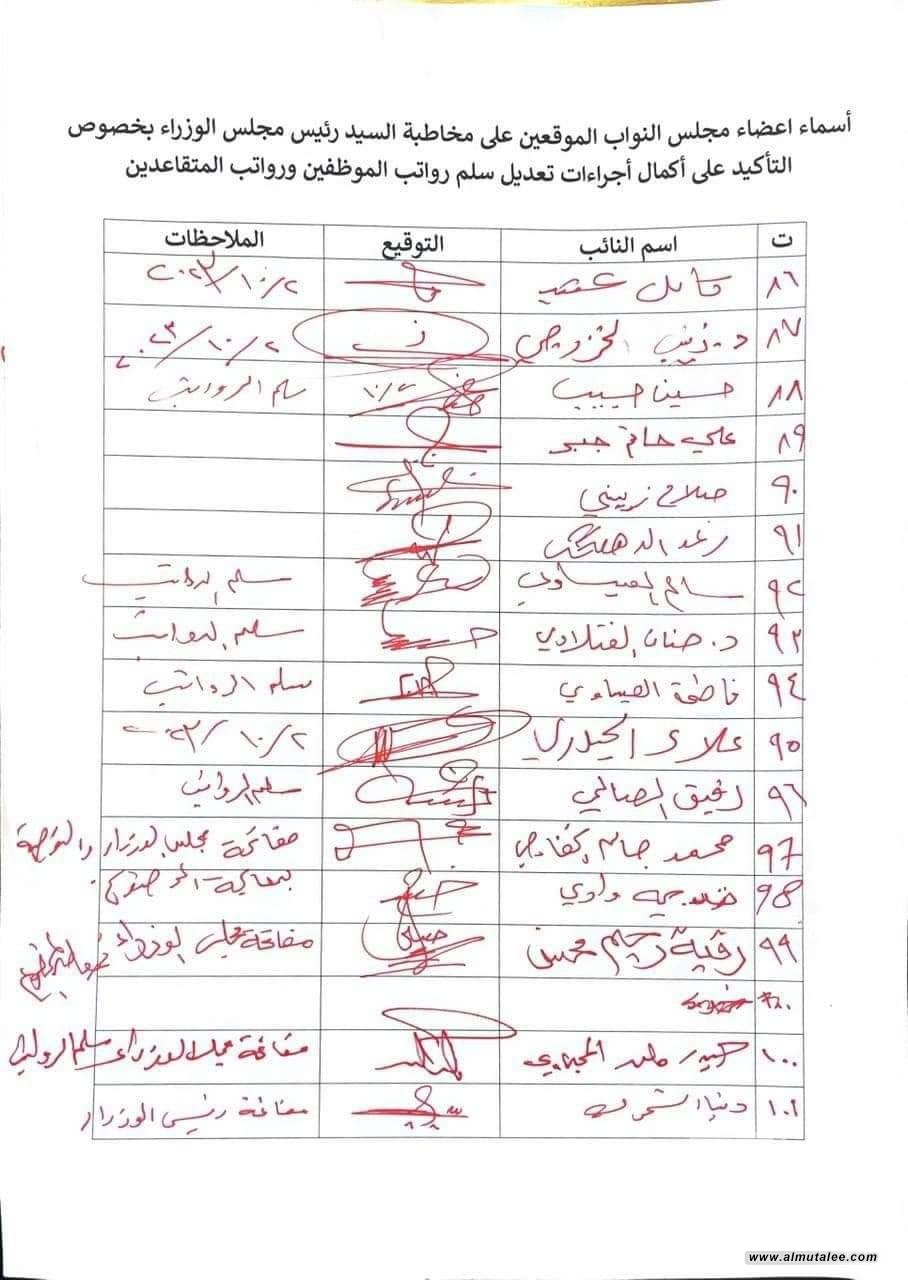 أسماء اعضاء مجلس النواب الموقعين على مخاطبة السيد رئيس مجلس الوزراء بخصوص
التأكيد على أكمال أجراءات تعديل سلم رواتب الموظفين ورواتب المتقاعدين
ت اسم النائب التوقيع الملاحظات
٨٦ ٢٠٢٣/١٠/٢
٨٧ د. زينب الخزرجي ٢٠٢٣/١٠/٢
٨٨ حسين حبيب ١٠/٢ سلم الرواتب
٨٩ علي جبر
٩٠ صلاح زيني
٩١ رغد
٩٢ سالم العيساوي سلم الرواتب
٩٣ د. حنان الفتلاوي سلم الرواتب
٩٤ فاطمة العيساوي سلم الرواتب
٩٥ علاء الحيدري ٢٠٢٣/١٠/٢
٩٦ رفيق الصالحي سلم الرواتب
٩٧ محمد جاسم الخفاجي مفاتحة مجلس الوزراء
٩٨ خديجة وادي
٩٩ رقية رحيم محسن مفاتحة مجلس الوزراء
١٠٠ مفاتحة مجلس الوزراء سلم الرواتب
١٠١ دنيا الشمري مفاتحة رئيس الوزراء
www.almutalee.com